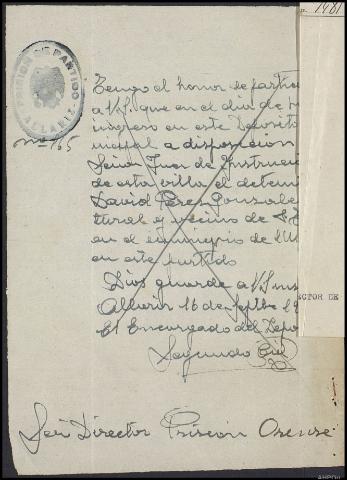 1981
PRISION DE PARTIDO
ALLARIZ
nº 165
Tengo el honor de partici
a V.S. que en el dia de
ingreso en este Deposito
nicipal a disposicion
Señor Juez de Instrucci
de esta villa el deteni
David Perez Gonzale
tural y vecino de
en el municipio de
en este partido
Dios guarde a V.S. mu
Allariz 16 de Septbre 19
El Encargado del Depo
Segundo
ECTOR DE
Señ Director Prision Orense
AHPOu